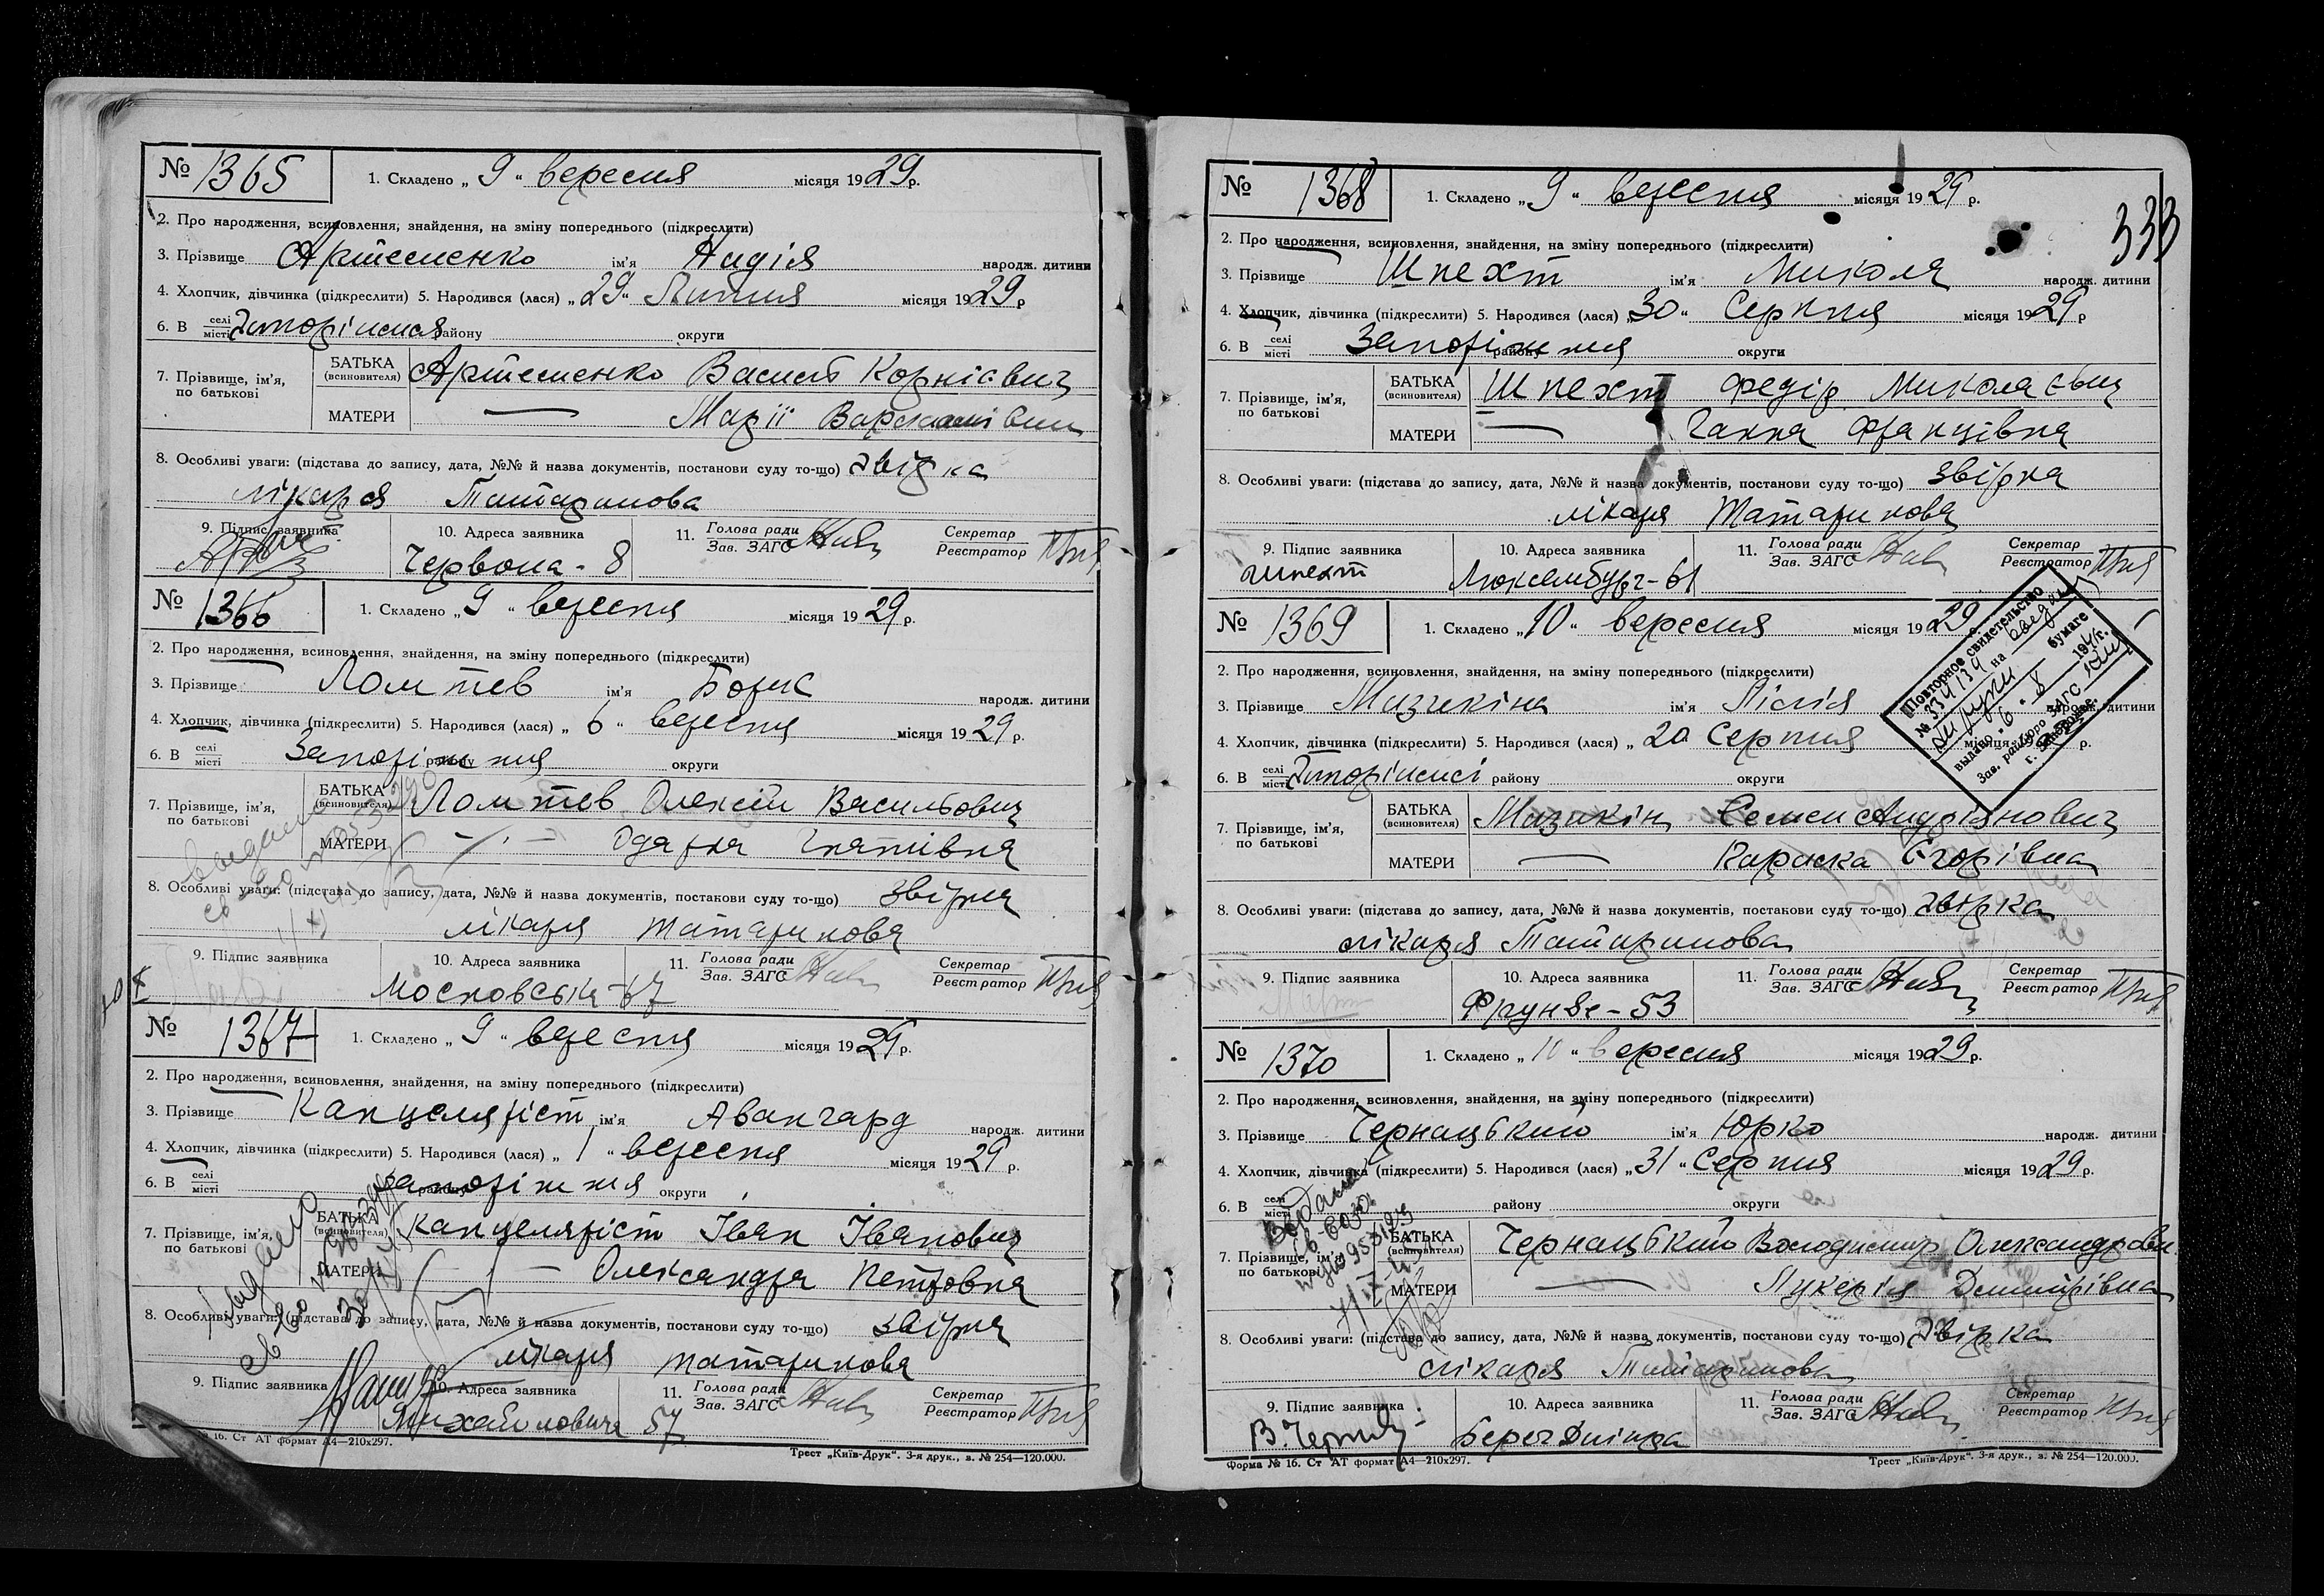 № 1365
1. Складено „ 9 “ вересня місяця 1929 р.
2. Про народження, всиновлення, знайдення, на зміну попереднього (підкреслити)
3. Прізвище Артеменко ім'я Надія народж. дитини
4. Хлопчик, дівчинка (підкреслити) 5. Народився (лася) „ 29 “ Липня місяця 1929 р
6. В селі місті району округи
7. Прізвище, ім'я, по батькові
БАТЬКА (всиновителя) Артеменко Василь Корнієвич
МАТЕРИ — Марії
8. Особливі уваги: (підстава до запису, дата, №№ й назва документів, постанови суду то-що) звірка
лікаря Татаринова
9. Підпис заявника 10. Адреса заявника 11. Голова ради Зав. ЗАГС Секретар Реєстратор
Червона - 8
№ 1366
1. Складено „ 9 “ вересня місяця 1929 р.
2. Про народження, всиновлення, знайдення, на зміну попереднього (підкреслити)
3. Прізвище Ломтев ім'я Борис народж. дитини
4. Хлопчик, дівчинка (підкреслити) 5. Народився (лася) „ 6 “ вересня місяця 1929 р.
6. В селі місті Запоріжжя району округи
7. Прізвище, ім'я, по батькові
БАТЬКА (всиновителя) Ломтев Олексій Васильович
МАТЕРИ — " — Одарка Гнатівна
8. Особливі уваги: (підстава до запису, дата, №№ й назва документів, постанови суду то-що) звірка
лікаря Татаринова
9. Підпис заявника 10. Адреса заявника 11. Голова ради Зав. ЗАГС Секретар Реєстратор
Московська - 67
№ 1367
1. Складено „ 9 “ вересня місяця 1929 р.
2. Про народження, всиновлення, знайдення, на зміну попереднього (підкреслити)
3. Прізвище Канцеляріст ім'я Авангард народж. дитини
4. Хлопчик, дівчинка (підкреслити) 5. Народився (лася) „ 1 “ вересня місяця 1929 р.
6. В селі місті Запоріжжя району округи
7. Прізвище, ім'я, по батькові
БАТЬКА (всиновителя) Канцеляріст Іван Іванович
МАТЕРИ — " — Олександра Петровна
8. Особливі уваги: (підстава до запису, дата, №№ й назва документів, постанови суду то-що) звірка
лікаря Татаринова
9. Підпис заявника 10. Адреса заявника 11. Голова ради Зав. ЗАГС Секретар Реєстратор
Михайловича 57
№ 16. Ст АТ формат А4—210х297. Трест „Київ-Друк“. 3-я друк., з. № 254—120.000.
333
№ 1368
1. Складено „ 9 “ вересня місяця 1929 р.
2. Про народження, всиновлення, знайдення, на зміну попереднього (підкреслити)
3. Прізвище Шпехт ім'я Микола народж. дитини
4. Хлопчик, дівчинка (підкреслити) 5. Народився (лася) „ 30 “ Серпня місяця 1929 р
6. В селі місті Запоріжжя району округи
7. Прізвище, ім'я, по батькові
БАТЬКА (всиновителя) Шпехт Федір Миколаєвич
МАТЕРИ — Ганна Францівна
8. Особливі уваги: (підстава до запису, дата, №№ й назва документів, постанови суду то-що) звірка
лікаря Татаринова
9. Підпис заявника 10. Адреса заявника 11. Голова ради Зав. ЗАГС Секретар Реєстратор
Шпехт Люксембург - 61
№ 1369
1. Складено „ 10 “ вересня місяця 1929 р.
2. Про народження, всиновлення, знайдення, на зміну попереднього (підкреслити)
3. Прізвище Мазикіна ім'я Лілія народж. дитини
4. Хлопчик, дівчинка (підкреслити) 5. Народився (лася) „ 20 Серпня місяця р.
6. В селі місті району округи
7. Прізвище, ім'я, по батькові
БАТЬКА (всиновителя) Мазикін Семен Андріянович
МАТЕРИ — Єгорівна
8. Особливі уваги: (підстава до запису, дата, №№ й назва документів, постанови суду то-що) звірка
лікаря Татаринова
9. Підпис заявника 10. Адреса заявника 11. Голова ради Зав. ЗАГС Секретар Реєстратор
Фрунзе - 53
Повторное свидетельство
№ на
бумаге
выдано „ 6 “ 8 194 г.
Зав. райбюро ЗАГС
г. Запорожье.
№ 1370
1. Складено „ 10 “ вересня місяця 1929 р.
2. Про народження, всиновлення, знайдення, на зміну попереднього (підкреслити)
3. Прізвище Чернацький ім'я Юрко народж. дитини
4. Хлопчик, дівчинка (підкреслити) 5. Народився (лася) „ 31 “ Серпня місяця 1929 р.
6. В селі місті району округи
7. Прізвище, ім'я, по батькові
БАТЬКА (всиновителя) Чернацький Володимир Олександрови
МАТЕРИ — Лукерія Дмитрівна
8. Особливі уваги: (підстава до запису, дата, №№ й назва документів, постанови суду то-що) звірка
лікаря Татаринова
9. Підпис заявника 10. Адреса заявника 11. Голова ради Зав. ЗАГС Секретар Реєстратор
Берег Дніпра
Форма № 16. Ст АТ формат А4—210х297. Трест „Київ-Друк“. 3-я друк., з. № 254—120.000.